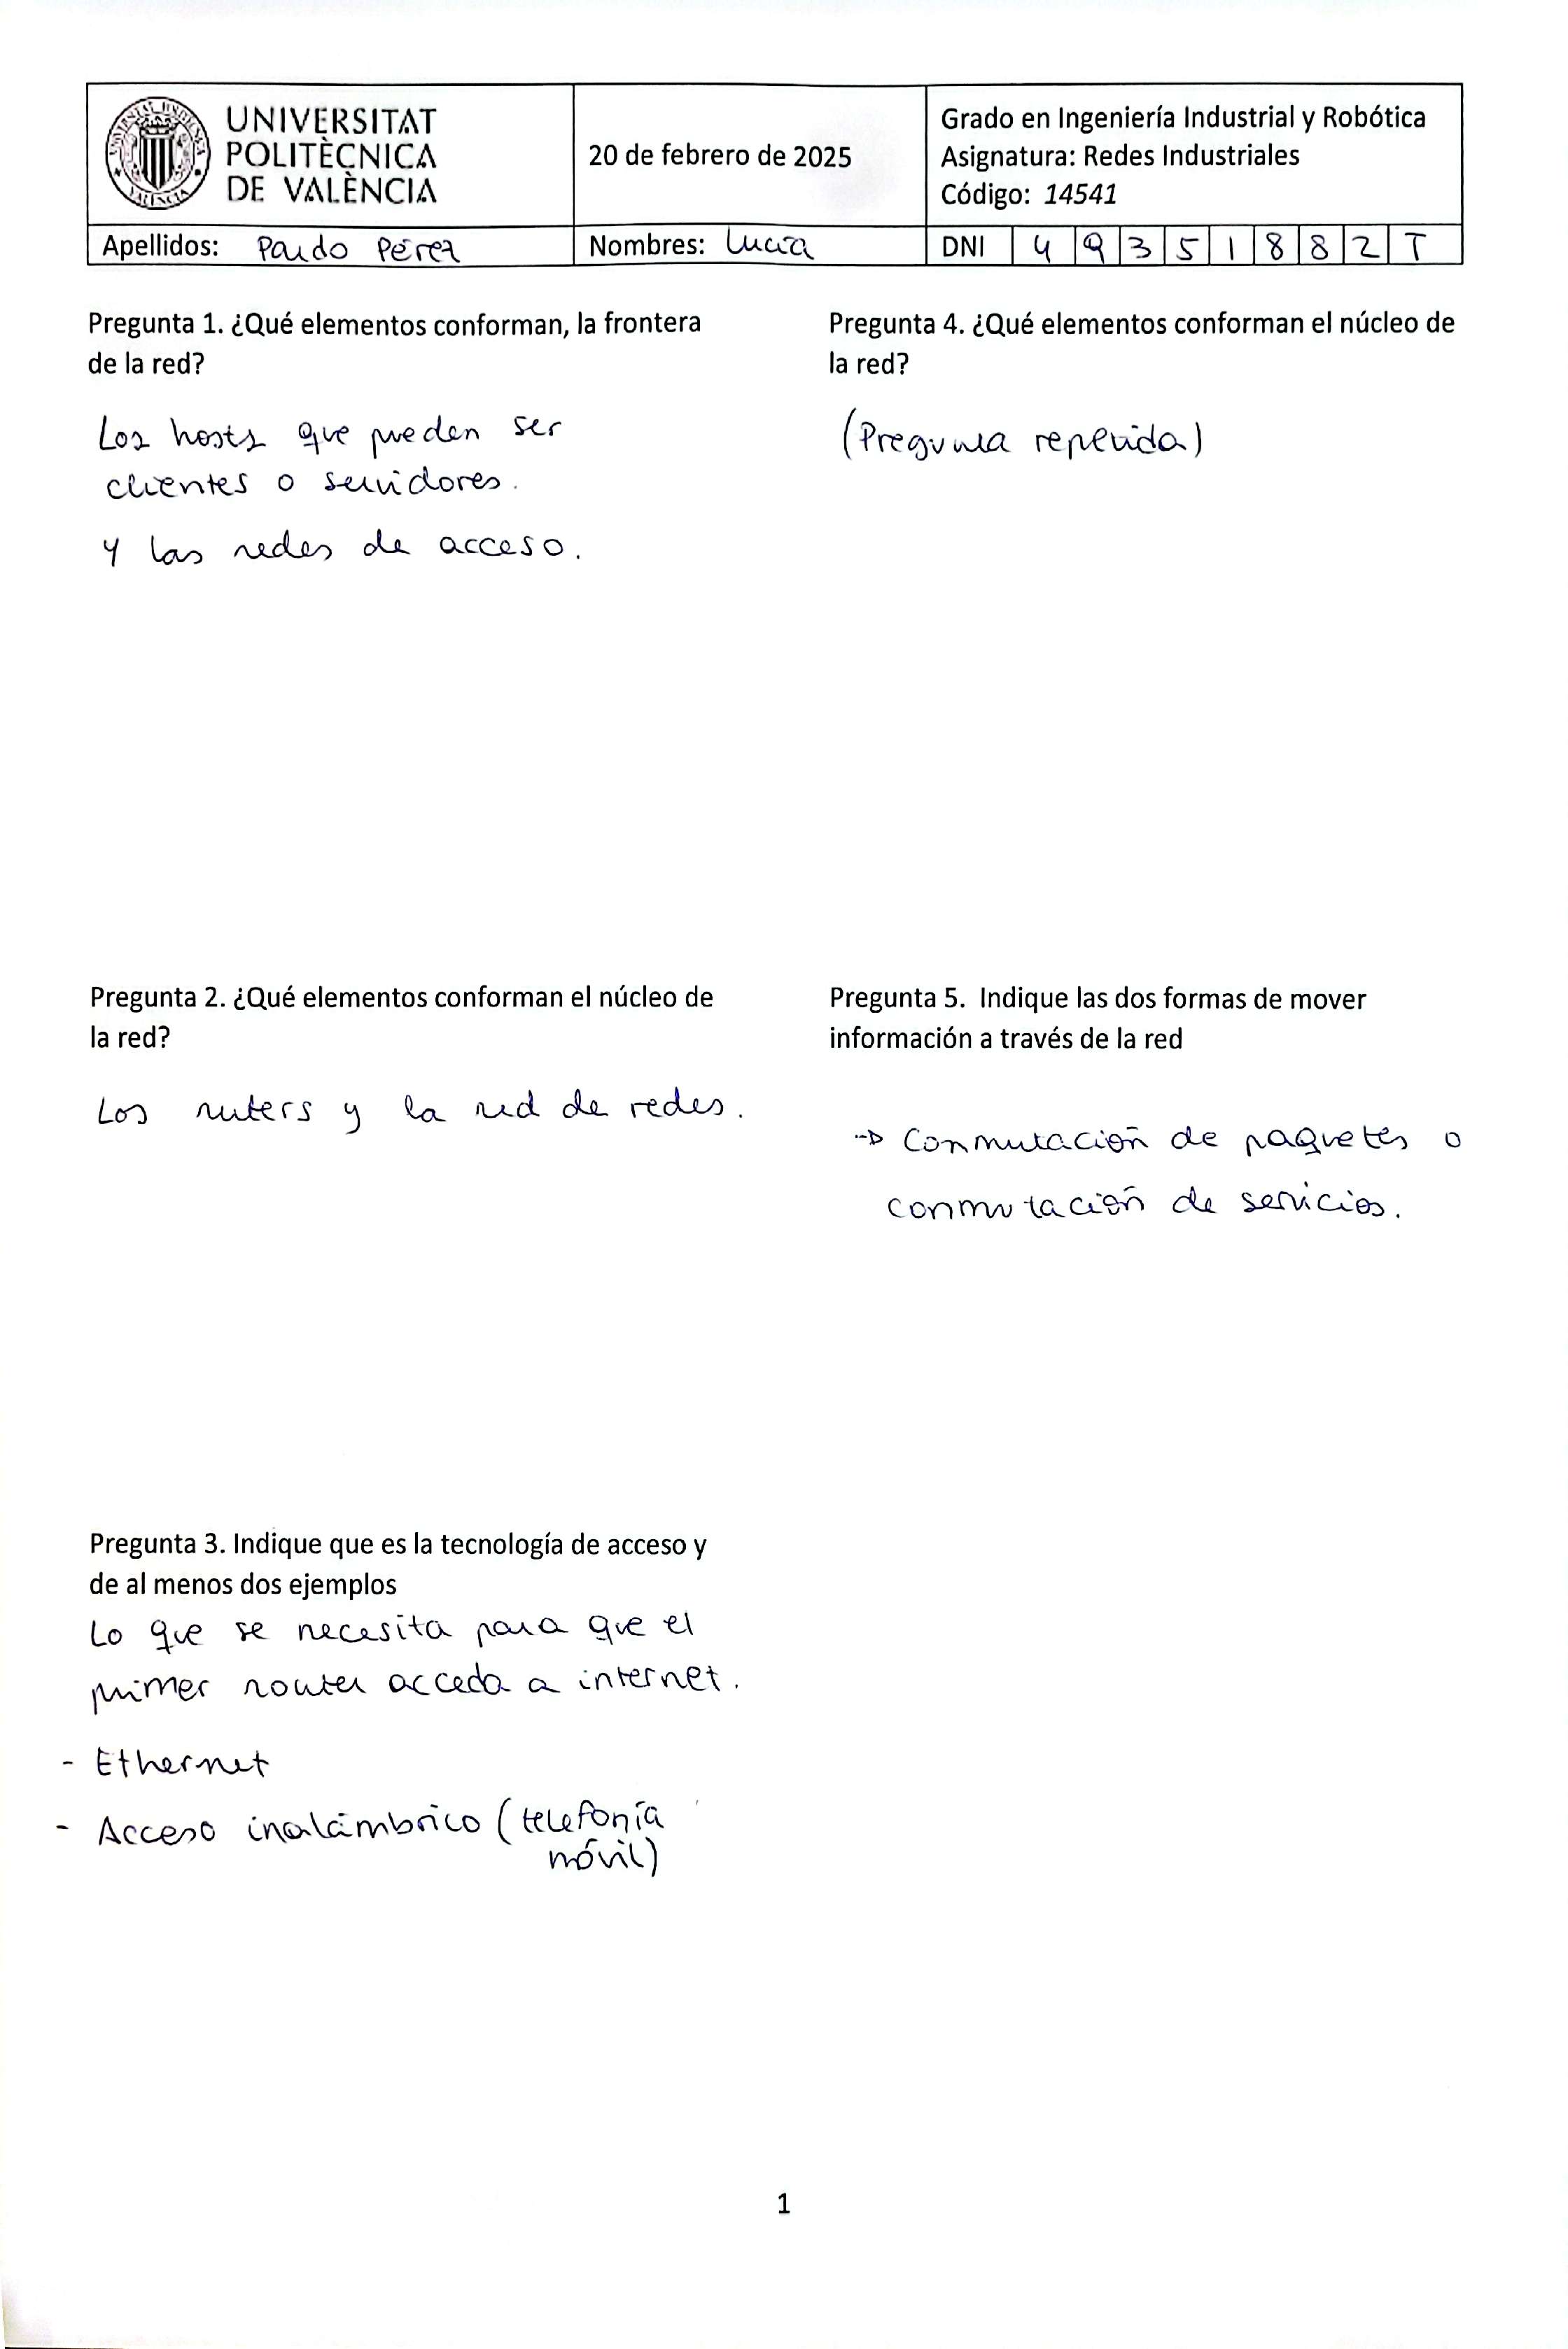 UNIVERSITAT
POLITÈCNICA
DE VALÈNCIA
20 de febrero de 2025
Grado en Ingeniería Industrial y Robótica
Asignatura: Redes Industriales
Código: 14541
Apellidos: Pardo Pérez
Nombres: Lucía
DNI 49351882T
Pregunta 1. ¿Qué elementos conforman, la frontera
de la red?
Los hosts que pueden ser
clientes o servidores.
y las redes de acceso.
Pregunta 2. ¿Qué elementos conforman el núcleo de
la red?
Los ruters y la red de redes.
Pregunta 3. Indique que es la tecnología de acceso y
de al menos dos ejemplos
Lo que se necesita para que el
primer router acceda a internet.
- Ethernet
- Acceso inalámbrico (telefonía
móvil)
Pregunta 4. ¿Qué elementos conforman el núcleo de
la red?
(Pregunta repetida)
Pregunta 5. Indique las dos formas de mover
información a través de la red
→ Conmutación de paquetes o
conmutación de servicios.
1